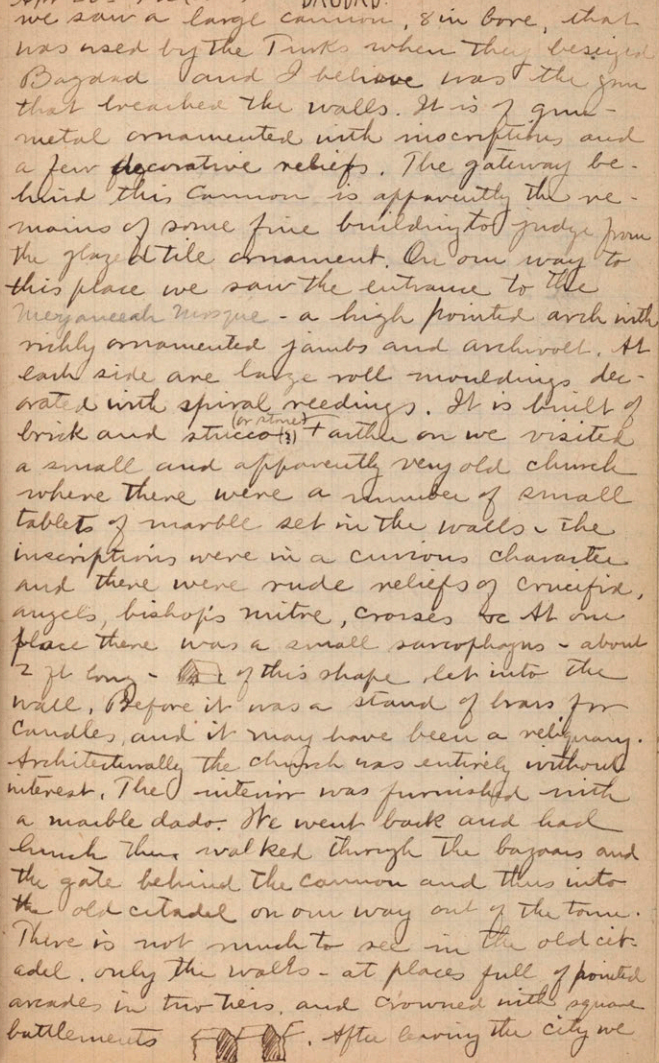 BAGDAD.
we saw a large cannon, 8 in bore, that
was used by the Turks when they beseiged
Bagdad and I believe was the gun
that breached the walls. It is of gun-
metal ornamented with inscriptions and
a few decorative reliefs. The gateway be-
hind this cannon is apparently the re-
mains of some fine building to judge from
the glazed tile ornament. On our way to
this place we saw the entrance to the
Mosque - a high pointed arch with
richly ornamented jambs and archivolt. At
each side are large roll mouldings dec-
orated with spiral reedings. It is built of
brick and stucco (or stone?) Farther on we visited
a small and apparently very old church
where there were a number of small
tablets of marble set in the walls - the
inscriptions were in a curious character
and there were rude reliefs of crucifix,
angels, bishop's mitre, crosses &c At one
place there was a small sarcophagus - about
2 ft long - of this shape let into the
wall. Before it was a stand of brass for
candles, and it may have been a reliquary.
Architecturally the church was entirely without
interest. The interior was furnished with
a marble dado. We went back and had
lunch then walked through the bazaars and
the gate behind the cannon and thus into
the old citadel on our way out of the town.
There is not much to see in the old cit-
adel, only the walls - at places full of pointed
arcades in two tiers, and crowned with square
battlements. After leaving the city we